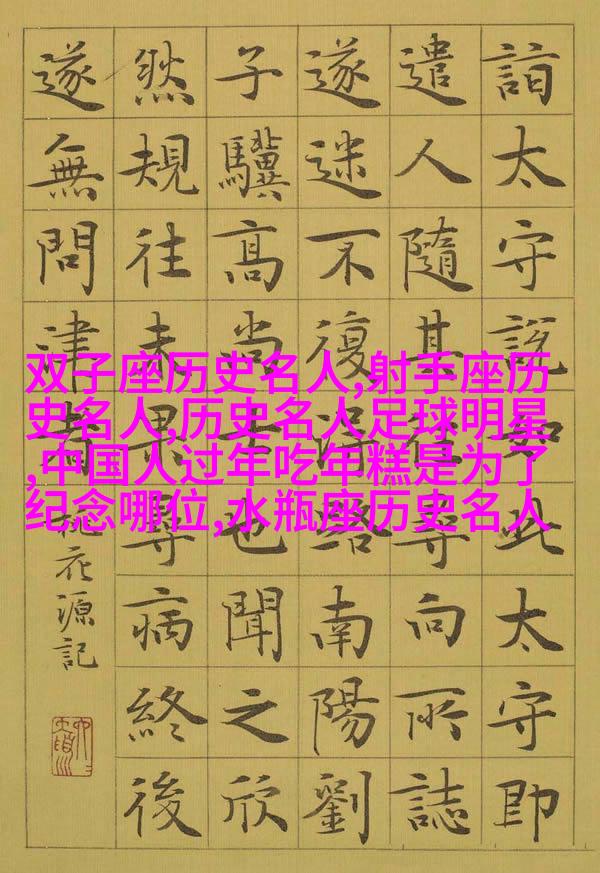 詣太守說如此太守即
遣人隨其往尋向所誌
遂迷不復得路南陽劉
子驥高尚士也聞之欣
然規往未果尋病終後
遂無問津者
桃花源記
双子座历史名人,射手座历
史名人,历史名人足球明星
,中国人过年吃年糕是为了
纪念哪位,水瓶座历史名人